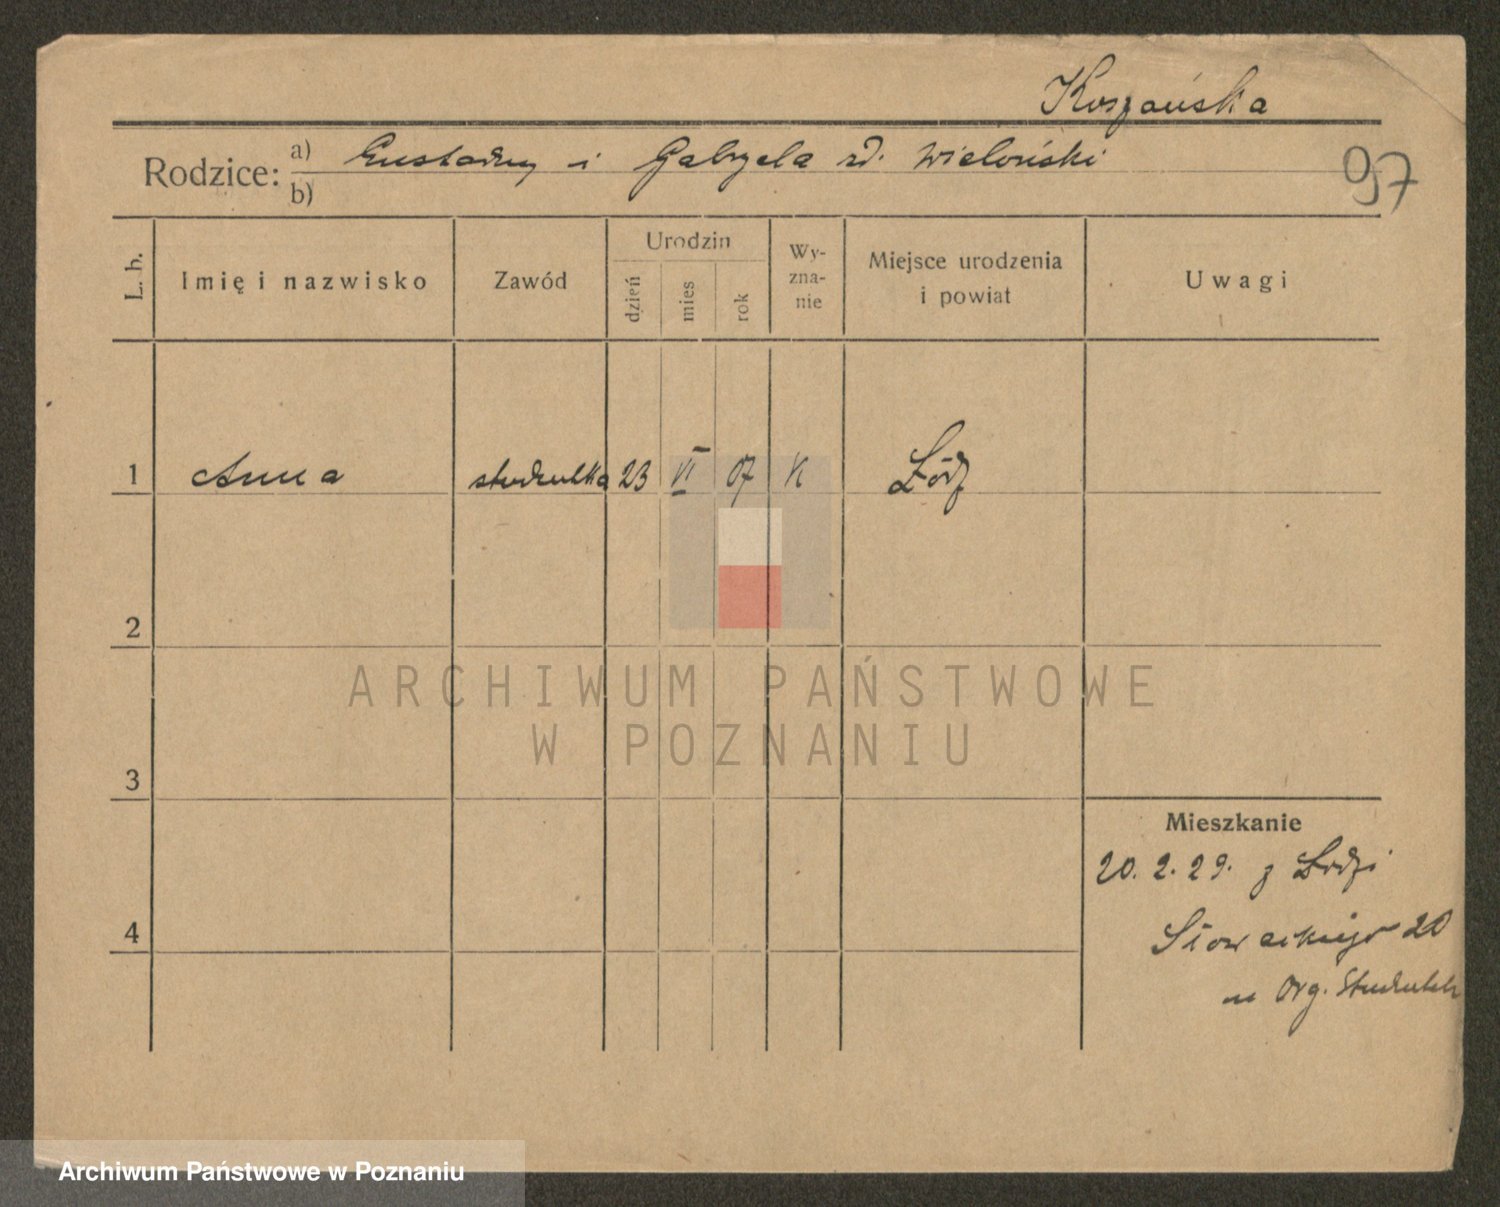 Koszańska
Rodzice: a) Eustachy i Gabryela zd. Wieloński
b)
97
L. b.
Imię i nazwisko
Zawód
Urodzin
dzień
mies
rok
Wy-
zna-
nie
Miejsce urodzenia
i powiat
Uwagi
1 Anna studentka 23 VI 07 k Łódź
2
3
4
Mieszkanie
20. 2. 29. z Łodzi
Słowackiego 20
Org. Studentek
ARCHIWUM PAŃSTWOWE
W POZNANIU
Archiwum Państwowe w Poznaniu